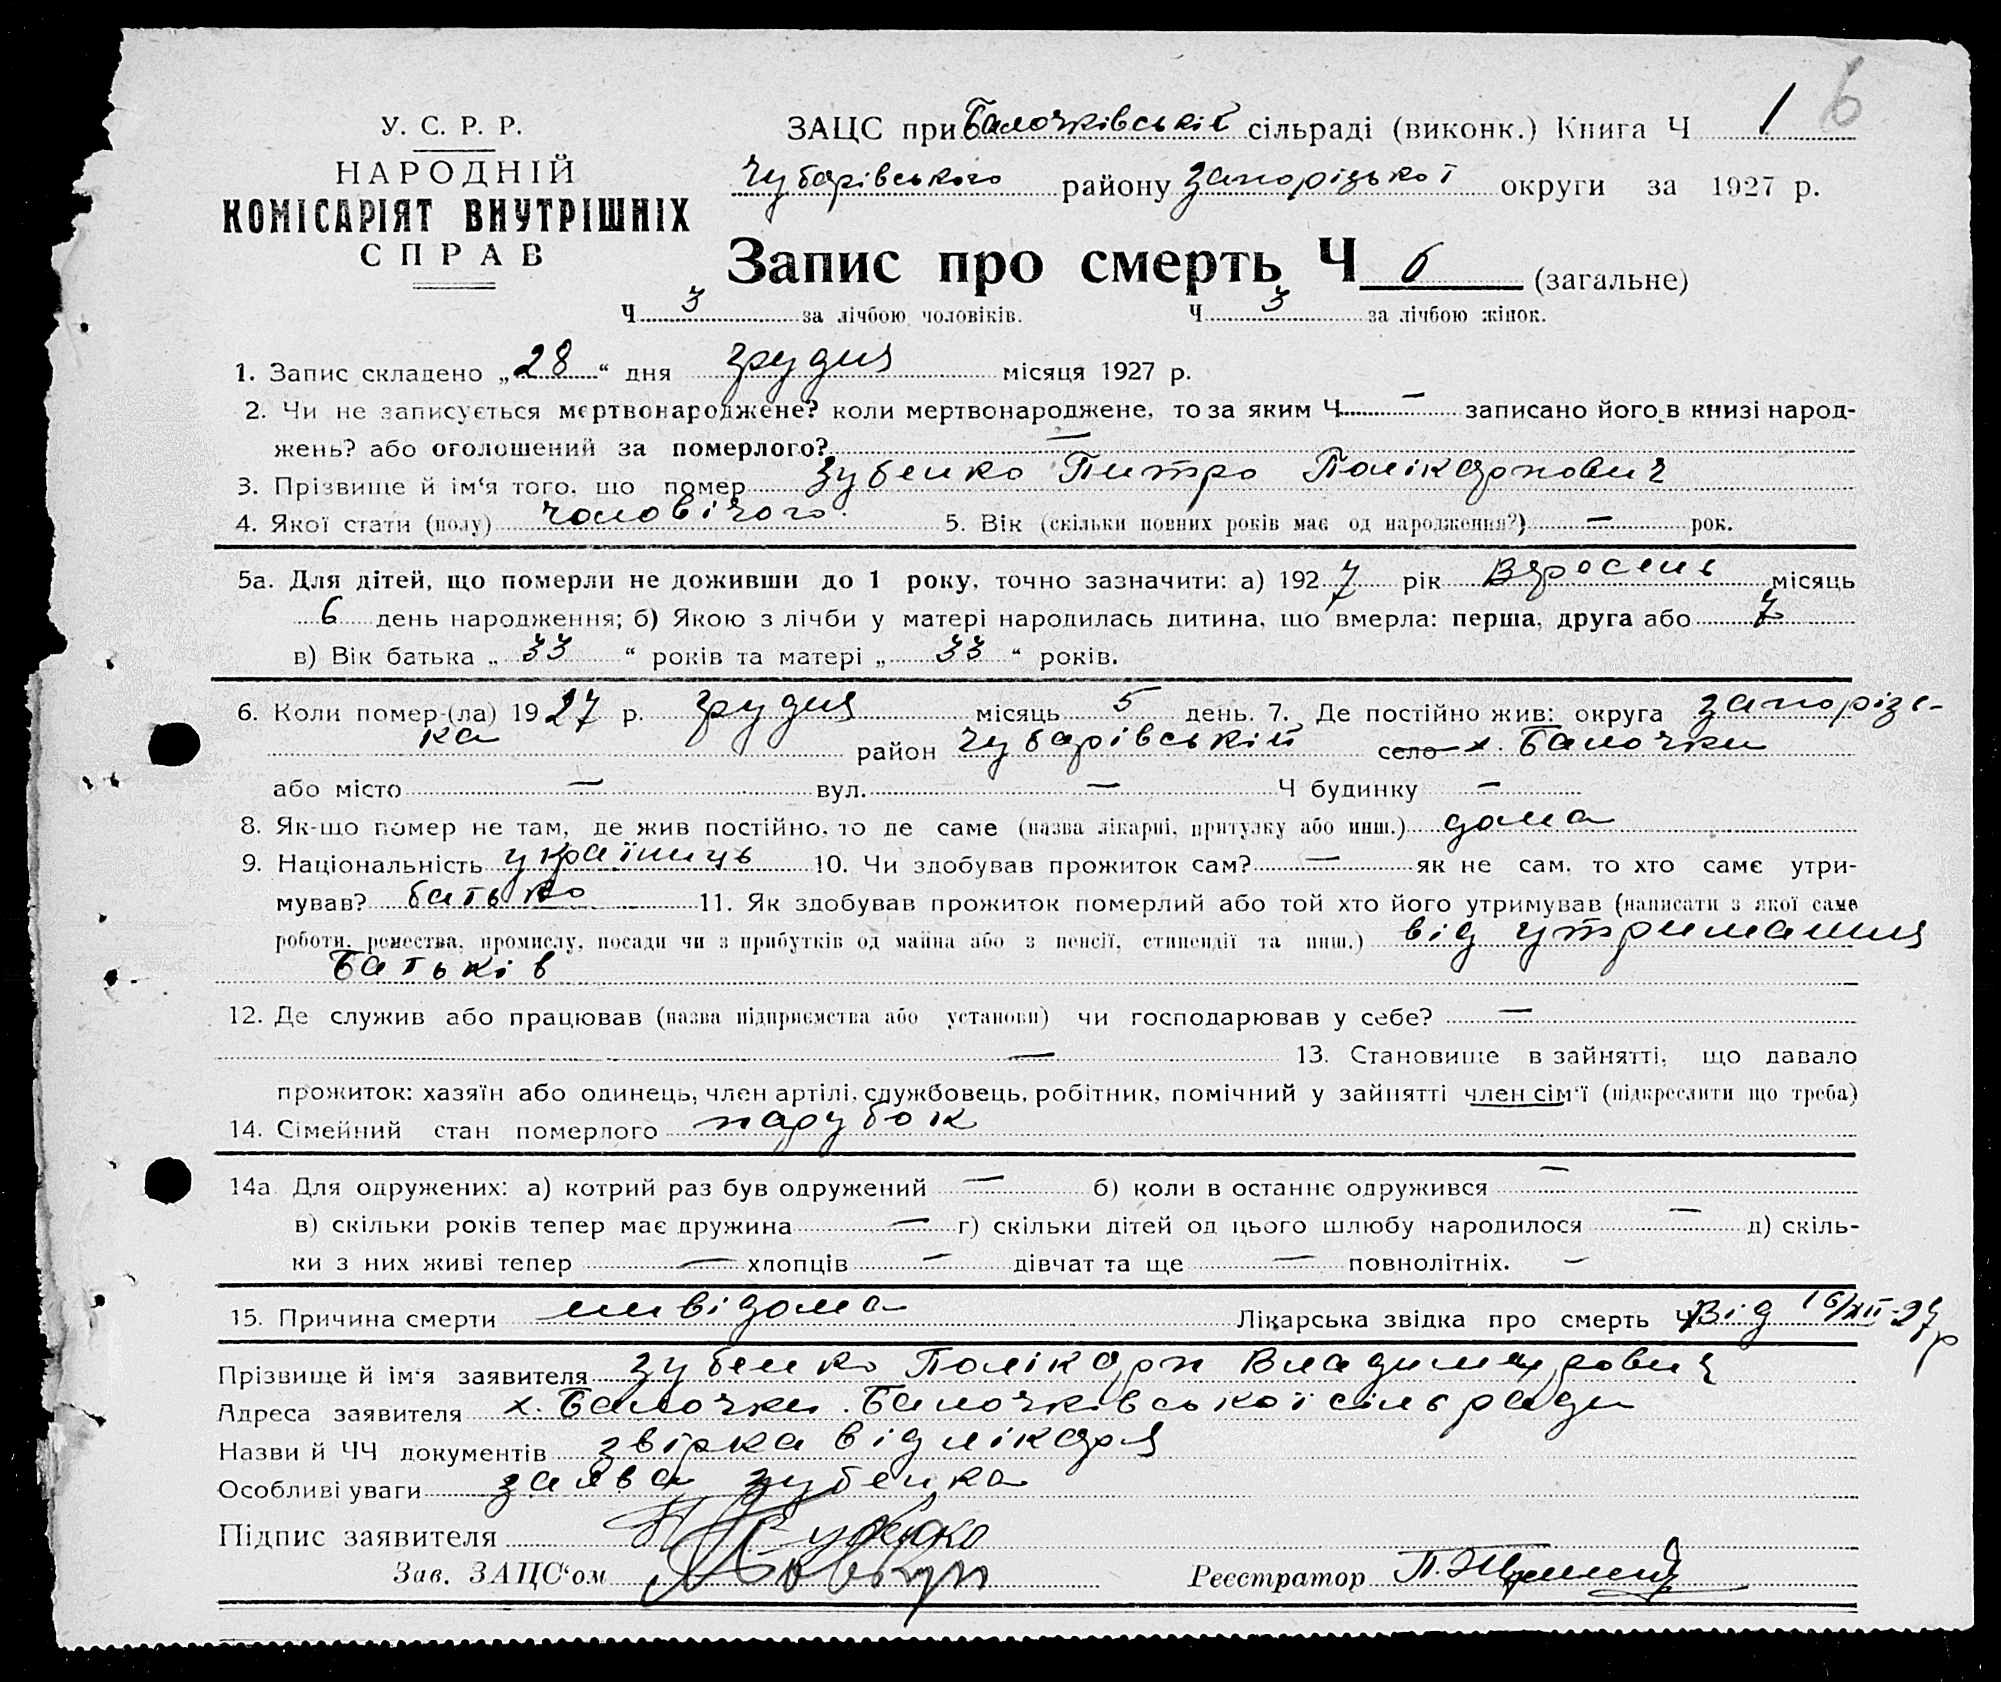 1 6
У. С. Р. Р.
НАРОДНІЙ
КОМІСАРІЯТ ВНУТРІШНІХ
СПРАВ
ЗАЦС при Балочківській сільраді (виконк.) Книга Ч
Чубарівського району Запорізької округи за 1927 р.
Запис про смерть Ч 6 (загальне)
Ч 3 за лічбою чоловіків. Ч 3 за лічбою жінок.
1. Запис складено „28“ дня грудня місяця 1927 р.
2. Чи не записується мертвонароджене? коли мертвонароджене, то за яким Ч — записано його в книзі народ-
жень? або оголошений за померлого? —
3. Прізвище й ім‘я того, що помер Зубенко Питро Полікарпович
4. Якої стати (полу) чоловічого 5. Вік (скільки повних років має од народження?) — рок.
5а. Для дітей, що померли не доживши до 1 року, точно зазначити: а) 1927 рік Вяросень місяць
6 день народження; б) Якою з лічби у матері народилась дитина, що вмерла: перша, друга або 7
в) Вік батька „ 33 “ років та матері „ 33 “ років.
6. Коли помер-(ла) 1927 р. грудня місяць 5 день. 7. Де постійно жив: округа Запорізь-
ка район Чубарівській село х. Балочки
або місто — вул. — Ч будинку —
8. Як-що помер не там, де жив постійно, то де саме (назва лікарні, притулку або инш.) дома
9. Національність україниць 10. Чи здобував прожиток сам? — як не сам, то хто саме утри-
мував? батько 11. Як здобував прожиток померлий або той хто його утримував (написати з якої саме
роботи, ремества, промислу, посади чи з прибутків од майна або з пенсії, стипендії та инш.) від утримання
Батьків
12. Де служив або працював (назва підприємства або установи) чи господарював у себе? —
— 13. Становище в зайнятті, що давало
прожиток: хазяїн або одинець, член артілі, службовець, робітник, помічний у зайнятті член сім‘ї (підкреслити що треба)
14. Сімейний стан померлого парубок
14а Для одружених: а) котрий раз був одружений — б) коли в останнє одружився —
в) скільки років тепер має дружина — г) скільки дітей од цього шлюбу народилося — д) скіль-
ки з них живі тепер — хлопців — дівчат та ще — повнолітніх. —
15. Причина смерти нивідома Лікарська звідка про смерть Ч Від 16/XII-27р
Прізвище й ім‘я заявителя Зубенко Полікарп
Адреса заявителя х. Балочки Балочківської сільради
Назви й ЧЧ документів звірка від лікаря
Особливі уваги заява Зубенка
Підпис заявителя П Зубенко
Зав. ЗАЦС‘ом
Реєстратор П.